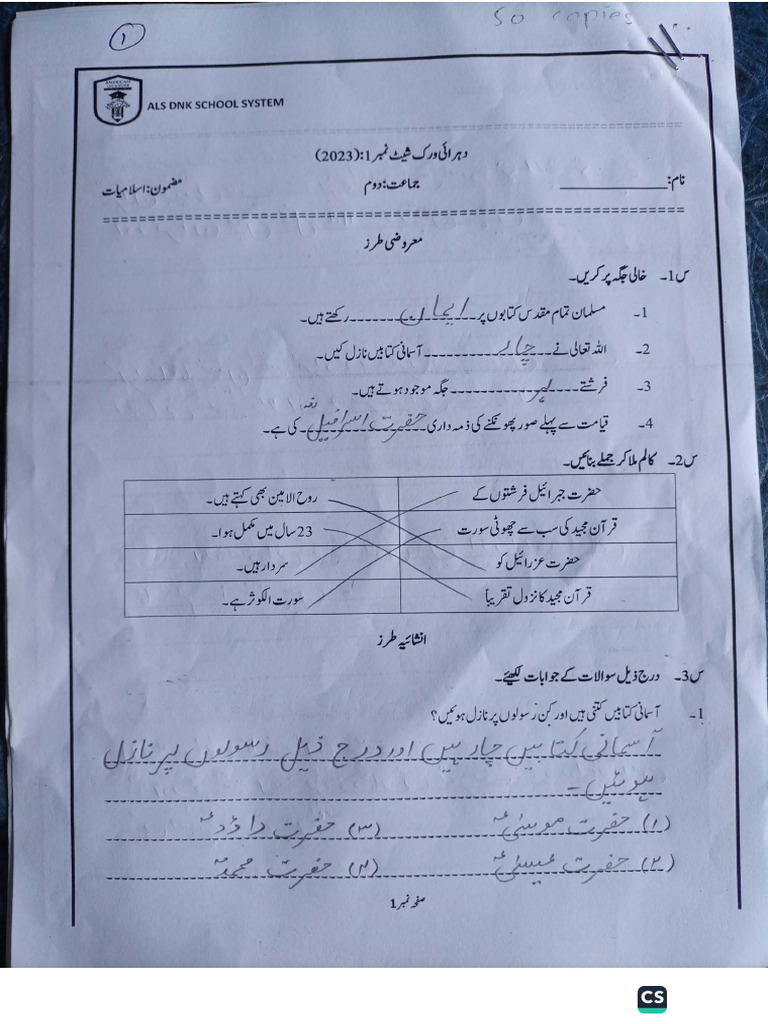 50 copies
1
ALS DNK SCHOOL SYSTEM
دہرائی ورک شیٹ نمبر 1: (2023)
نام: ____________ جماعت: دوم مضمون: اسلامیات
معروضی طرز
س1۔ خالی جگہ پر کریں۔
1۔ مسلمان تمام مقدس کتابوں پر ایمان رکھتے ہیں۔
2۔ اللہ تعالی نے چار آسمانی کتابیں نازل کیں۔
3۔ فرشتے ہر جگہ موجود ہوتے ہیں۔
4۔ قیامت سے پہلے صور پھونکنے کی ذمہ داری حضرت اسرافیلؑ کی ہے۔
س2۔ کالم ملا کر جملے بنائیں۔
حضرت جبرائیل فرشتوں کے روح الامین بھی کہتے ہیں۔
قرآن مجید کی سب سے چھوٹی سورت 23 سال میں مکمل ہوا۔
حضرت عزرائیل کو سردار ہیں۔
قرآن مجید کا نزول تقریباً سورت الکوثر ہے۔
انشائیہ طرز
س3۔ درج ذیل سوالات کے جوابات لکھیئے۔
1۔ آسمانی کتابیں کتنی ہیں اور کن رسولوں پر نازل ہوئیں؟
آسمانی کتابیں چار ہیں اور درج ذیل رسولوں پر نازل
ہوئیں۔
(۱) حضرت موسیٰؑ (۳) حضرت داؤدؑ
(۲) حضرت عیسیٰؑ (۴) حضرت محمدؐ
صفحہ نمبر 1
CS